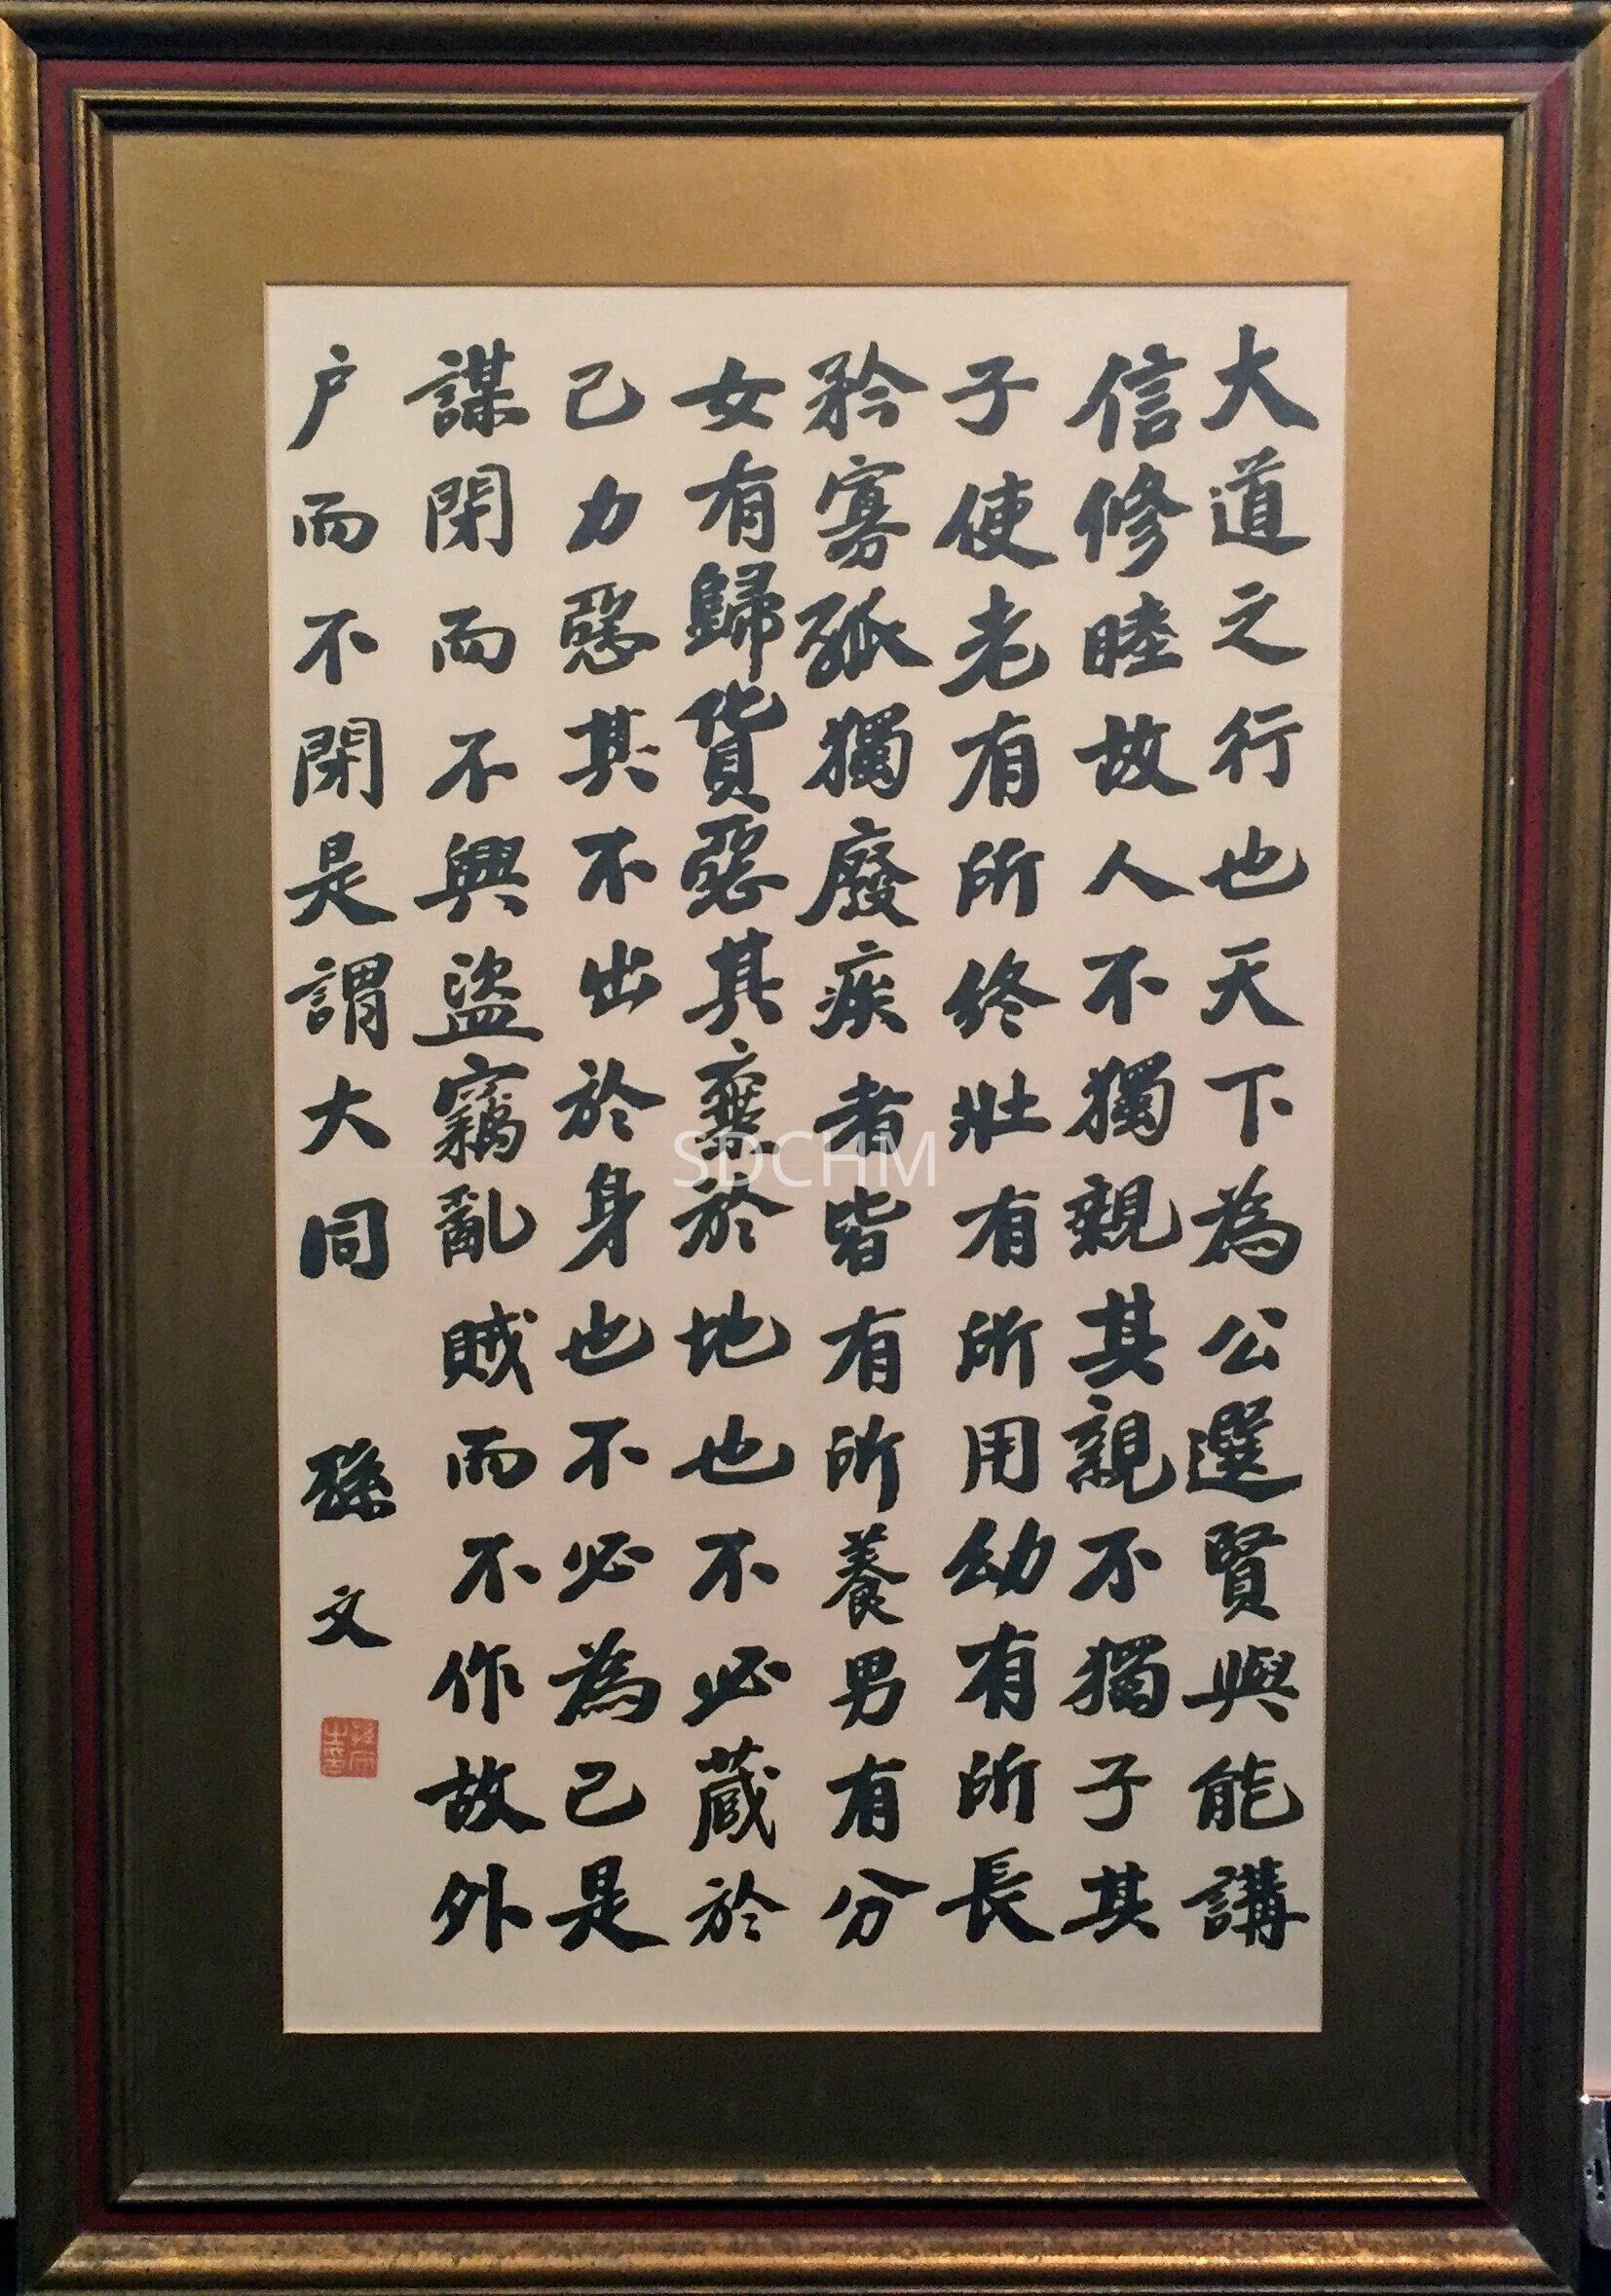 大道之行也天下為公選賢與能講
信修睦故人不獨親其親不獨子其
子使老有所終壯有所用幼有所長
矜寡孤獨廢疾者皆有所養男有分
女有歸貨惡其棄於地也不必藏於
己力惡其不出於身也不必為己是
謀閉而不興盜竊亂賊而不作故外
户而不閉是謂大同 孫文
SDCHM